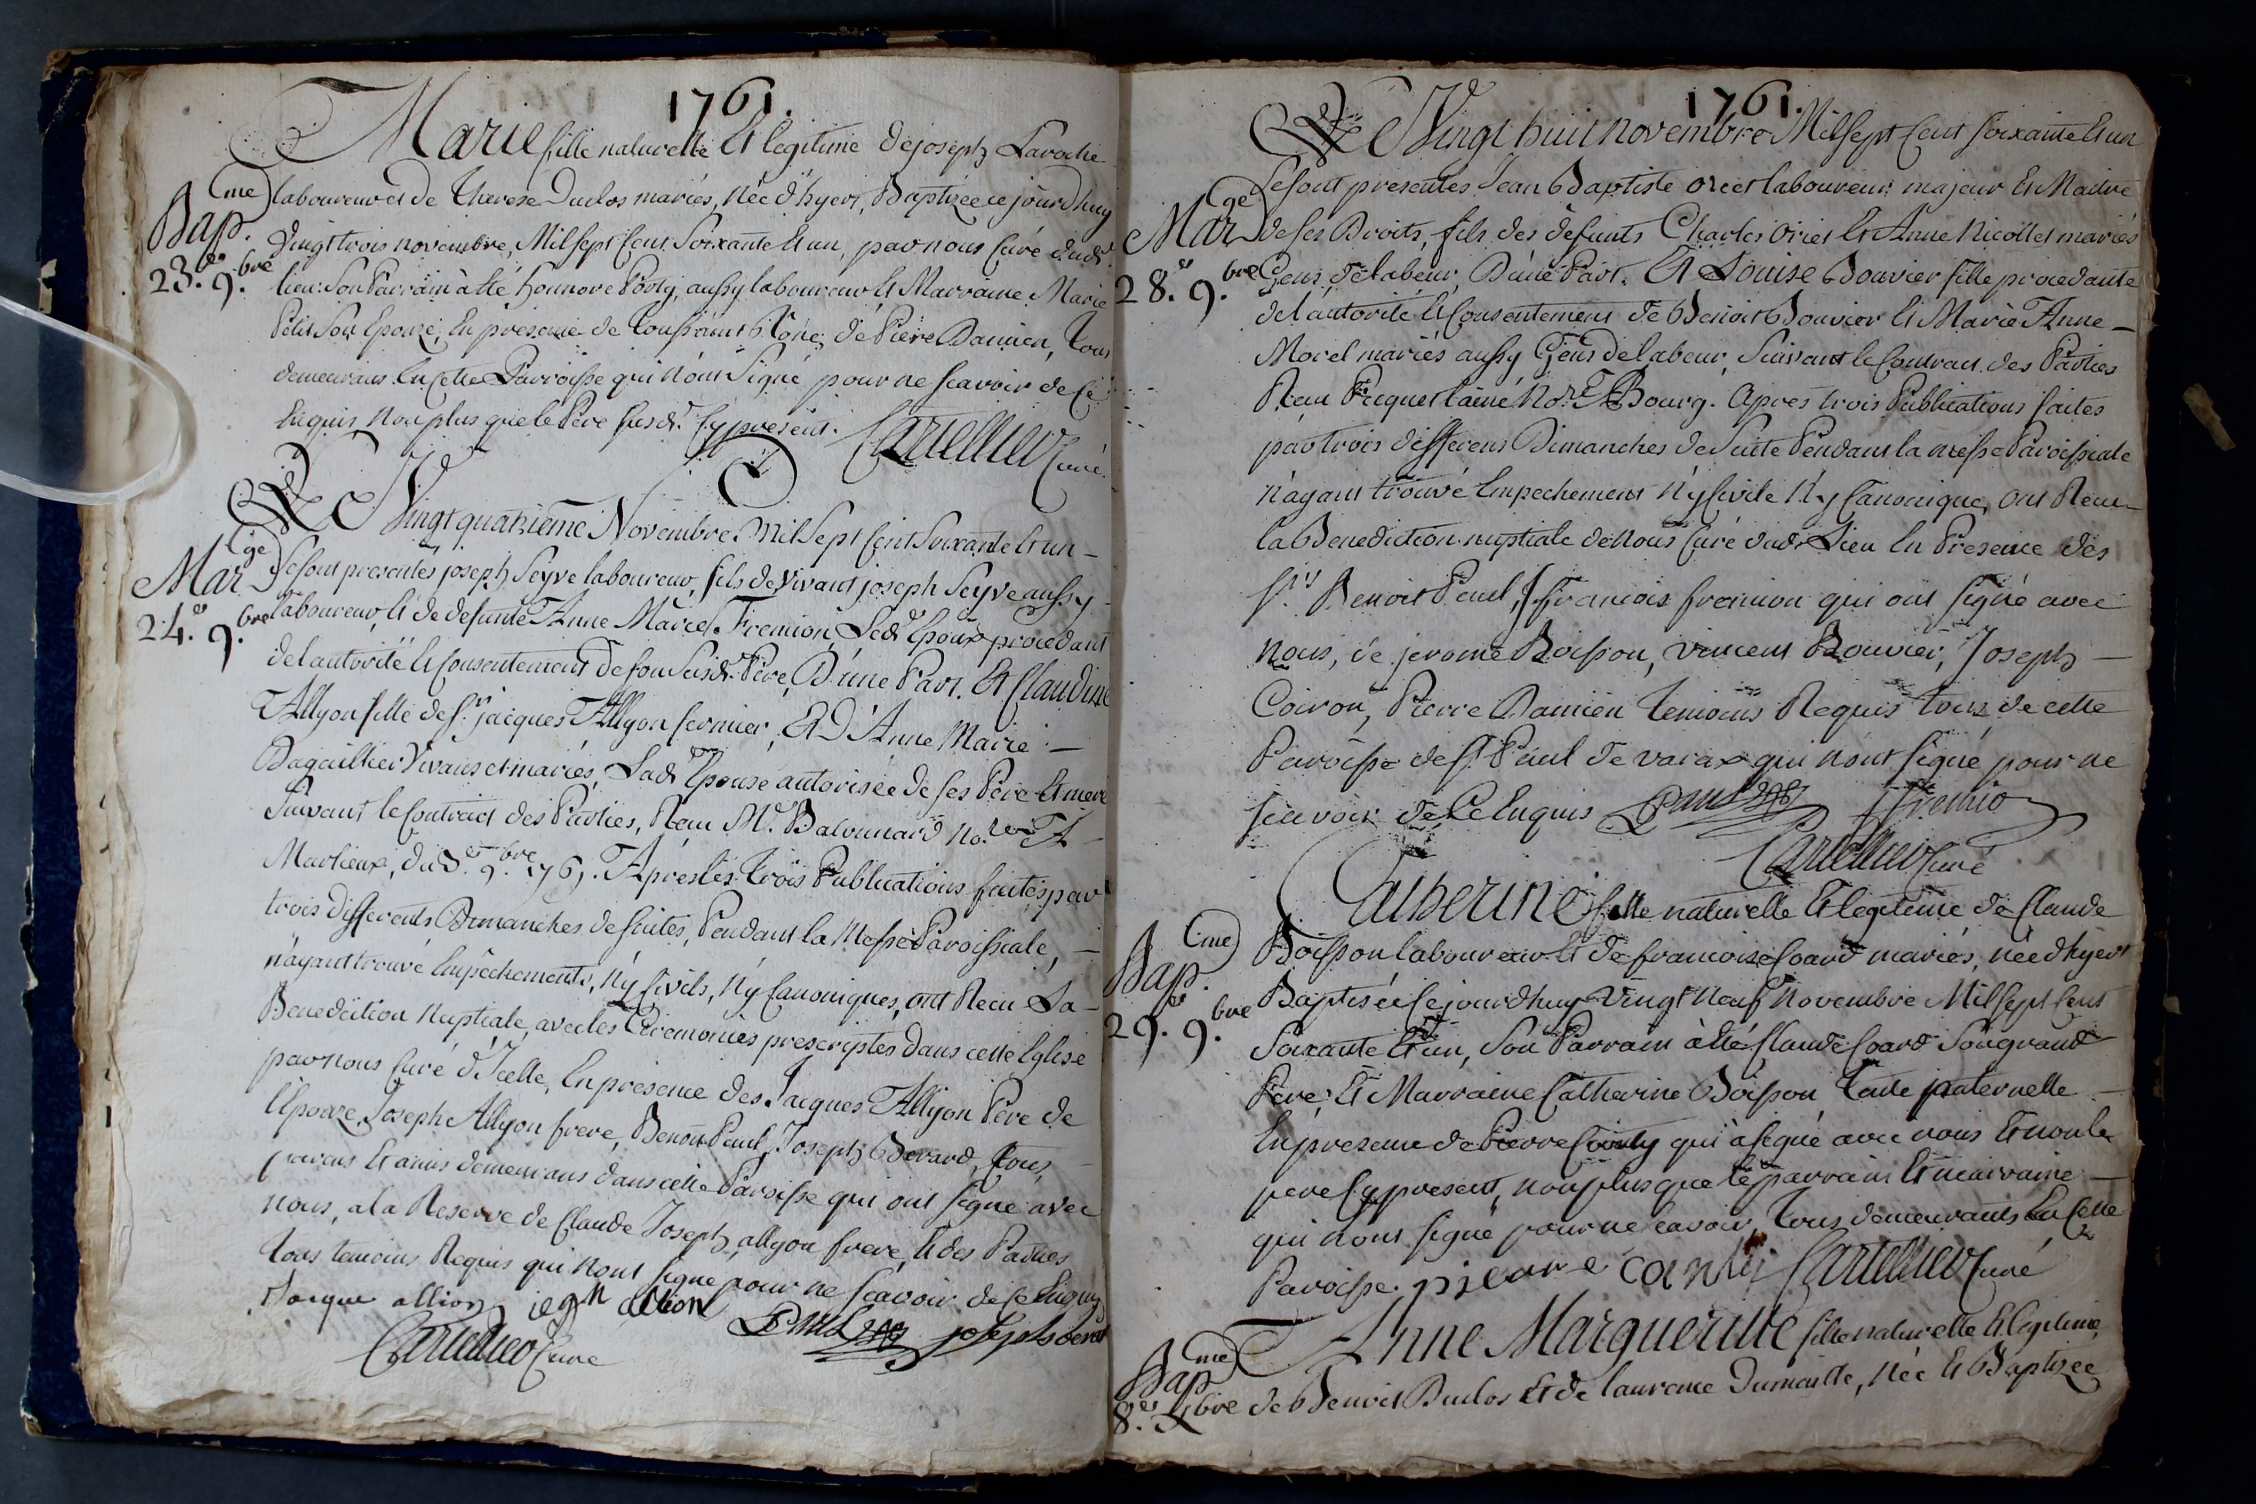 1761.
Marie fille naturelle Et legitime de joseph Laroche
Bap.me
23.e 9.bre
laboureur et de Therese Duclos mariés, Née d'hyer, Baptizée ce jourdhuy
Vingt trois novembre, Mil sept Cent Soixante Et un, par nous Curé dud.
lieu. Son Parrain à Eté honnoré Poly, aussy laboureur Et Marraine Marie
Petit Son Epouze, En présence de Toussaint de Pierre Damien, Tous
demeurans En cette Parroisse qui n'ont Signé pour ne scavoir de Ce
Enquis, Non plus que le Père susd. Cy présent. Cartellier Curé.
Le Vingt quatrième Novembre Mil Sept Cent Soixante Et un
Mar.ge
24.e 9.bre
Se sont presentés joseph Seyve laboureur, fils de Vivant joseph Seyve aussy
laboureur, Et de defunte Anne Marie Fremion, Led. Epoux procedant
de l'autorité Et Consentement de son Susd. Père, D'une Part. Et Claudine
Allyon fille de s.r jacques Allyon fermier, Et D'Anne Marie
Dagaillier Vivans et mariés, Lad. Epouse autorisée de ses Père Et mere
Suivant le Contract des Parties, Recu M.e Balounard No.re A
Marlieux, du 8.e 9.bre 1761. Après les Trois Publications faites par
trois differents Dimanches de suites, Pendant la Messe Paroissiale,
n'ayant trouvé Empêchements, Ny Civils, Ny Canoniques, ont Recu La
Benediction Nuptiale, avec les Ceremonies prescriptes dans cette Eglise
par nous Curé d'Icelle, En présence des Jacques Allyon Père de
l'Epouze, Joseph Allyon frere, Benoit Paul, Joseph Berard, tous
parens Et amis demeurans dans cette Paroisse qui ont signé avec
nous, a la Reserve de Claude Joseph allyon frere, Et des Parties
Tous temoins Requis qui n'ont signé pour ne scavoir de ce Enquis
Jacque allion jean allion Paul joseph berard
Cartellier Curé
1761.
Le Vingt huit novembre Mil sept Cent soixante Et un
Mar.ge
28.e 9.bre
Se sont presentés Jean Baptiste Oriet laboureur majeur Et Maitre
de ses Droits, fils des défunts Charles Oriet Et Anne Nicollet mariés
Gens de labeur, D'une Part. Et Louise Bouvier fille procedante
de l'autorité Et Consentement de Benoit Bouvier Et Marie Anne
Morel mariés aussy Gens de labeur, Suivant le Contract des Parties
Recu Picquet lainé No.re A Bourg. Après trois Publications faites
par trois differens Dimanches de Suite Pendant la messe Paroissiale
n'ayant trouvé Empechement Ny Civile Ny Canonique, ont Recu
la Benediction nuptiale de nous Curé dud. Lieu En Presence des
s.rs Benoit Paul, françois fremion qui ont signé avec
nous, de jerome Boisson, Vincent Bouvier, Joseph
Coiron, Pierre Damien Temoins Requis tous de cette
Paroisse de s.t Paul de varax qui n'ont signé pour ne
scavoir de Ce Enquis Paul ffremio
Cartellier Curé
Catherine fille naturelle Et legitime de Claude
Bap.me
29.e 9.bre
Boisson laboureur Et de francoise Coard mariés, née d'hyer
Baptisée Ce jourdhuy Vingt Neuf Novembre Mil sept Cent
Soixante Et un, Son Parrain à Eté Claude Coard Son grand
Père Et Marraine Catherine Boisson Tante paternelle
En presence de Pierre Couty qui à signé avec nous Et non le
pere Cy present, non plus que le parrain Et marraine
qui n'ont signé pour ne scavoir, Tous demeurants En Cette
Paroisse. pierre Cartellier Curé
Anne Margueritte fille naturelle Et legitime
Bap.me
8.e Xbre
de Benoit Duclos Et de laurence Dumaitte, Née Et Baptizée